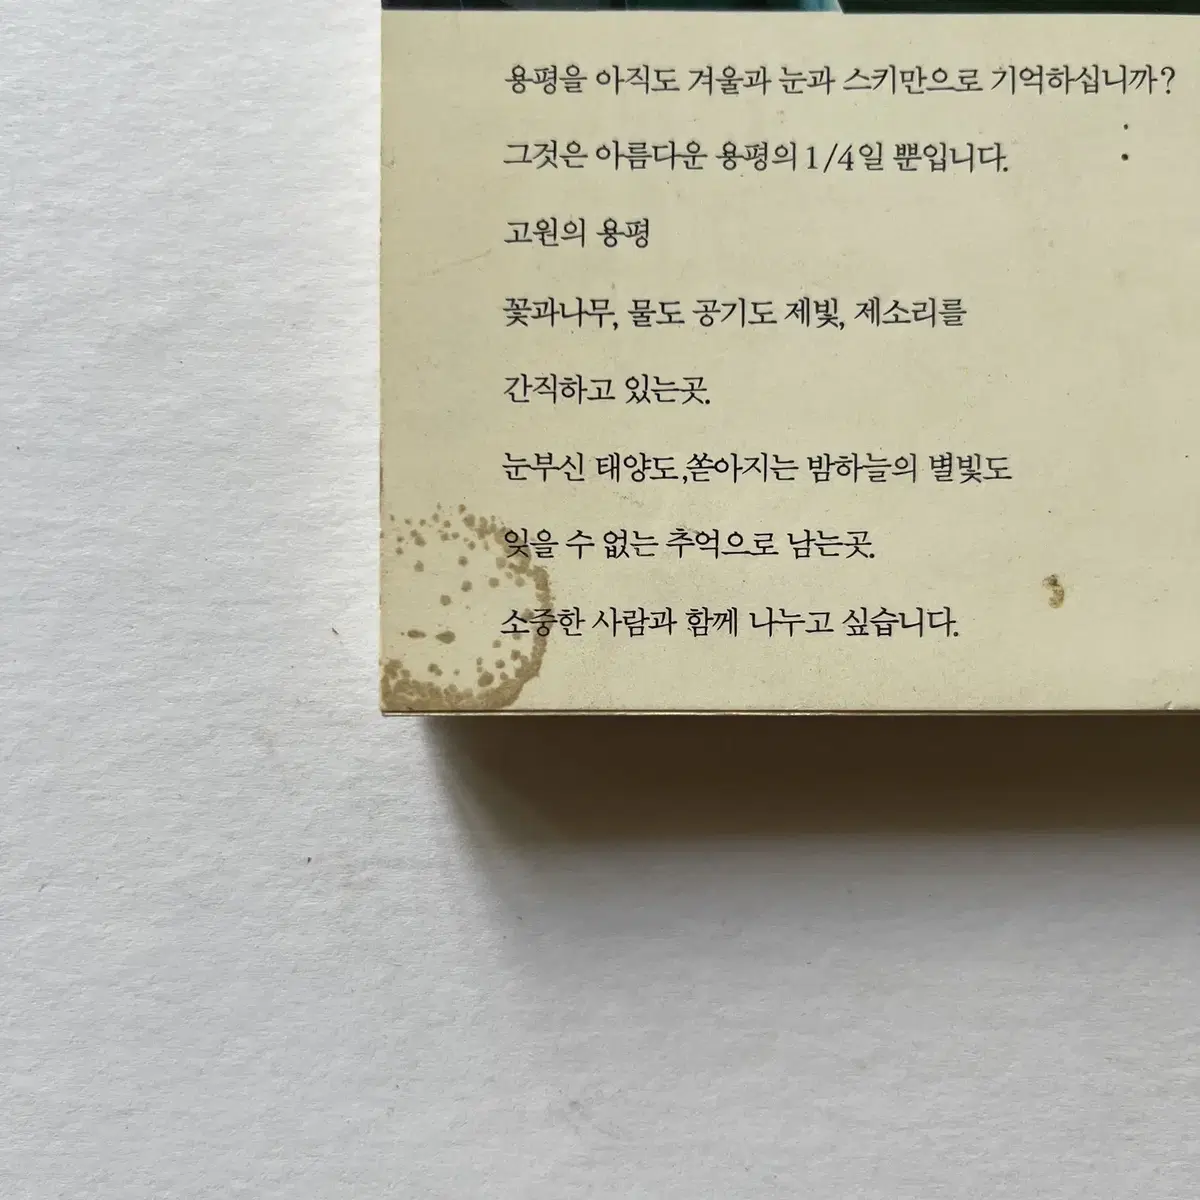 용평을 아직도 겨울과 눈과 스키만으로 기억하십니까?
그것은 아름다운 용평의 1/4일 뿐입니다.
고원의 용평
꽃과나무, 물도 공기도 제빛, 제소리를
간직하고 있는곳.
눈부신 태양도,쏟아지는 밤하늘의 별빛도
잊을 수 없는 추억으로 남는곳.
소중한 사람과 함께 나누고 싶습니다.